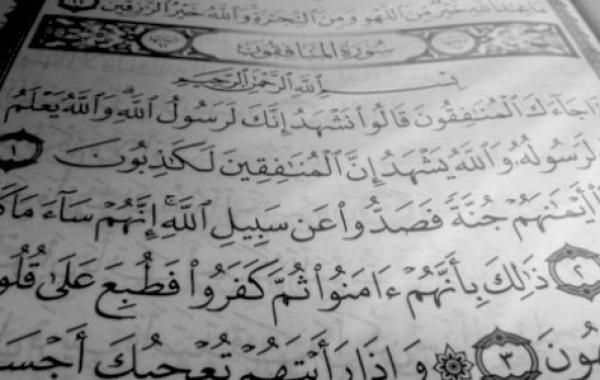 مَا عِندَ ٱللَّهِ خَيْرٌ مِّنَ ٱللَّهْوِ وَمِنَ ٱلتِّجَٰرَةِ وَٱللَّهُ خَيْرُ ٱلرَّٰزِقِينَ ١١
سُورَةُ المُنَافِقُونَ
بِسْمِ ٱللَّهِ ٱلرَّحْمَٰنِ ٱلرَّحِيمِ
جَآءَكَ ٱلْمُنَٰفِقُونَ قَالُوا۟ نَشْهَدُ إِنَّكَ لَرَسُولُ ٱللَّهِ ۗ وَٱللَّهُ يَعْلَمُ
لَرَسُولُهُۥ وَٱللَّهُ يَشْهَدُ إِنَّ ٱلْمُنَٰفِقِينَ لَكَٰذِبُونَ ١
أَيْمَٰنَهُمْ جُنَّةً فَصَدُّوا۟ عَن سَبِيلِ ٱللَّهِ ۚ إِنَّهُمْ سَآءَ مَا
٢ ذَٰلِكَ بِأَنَّهُمْ ءَامَنُوا۟ ثُمَّ كَفَرُوا۟ فَطُبِعَ عَلَىٰ
٣ وَإِذَا رَأَيْتَهُمْ تُعْجِبُكَ